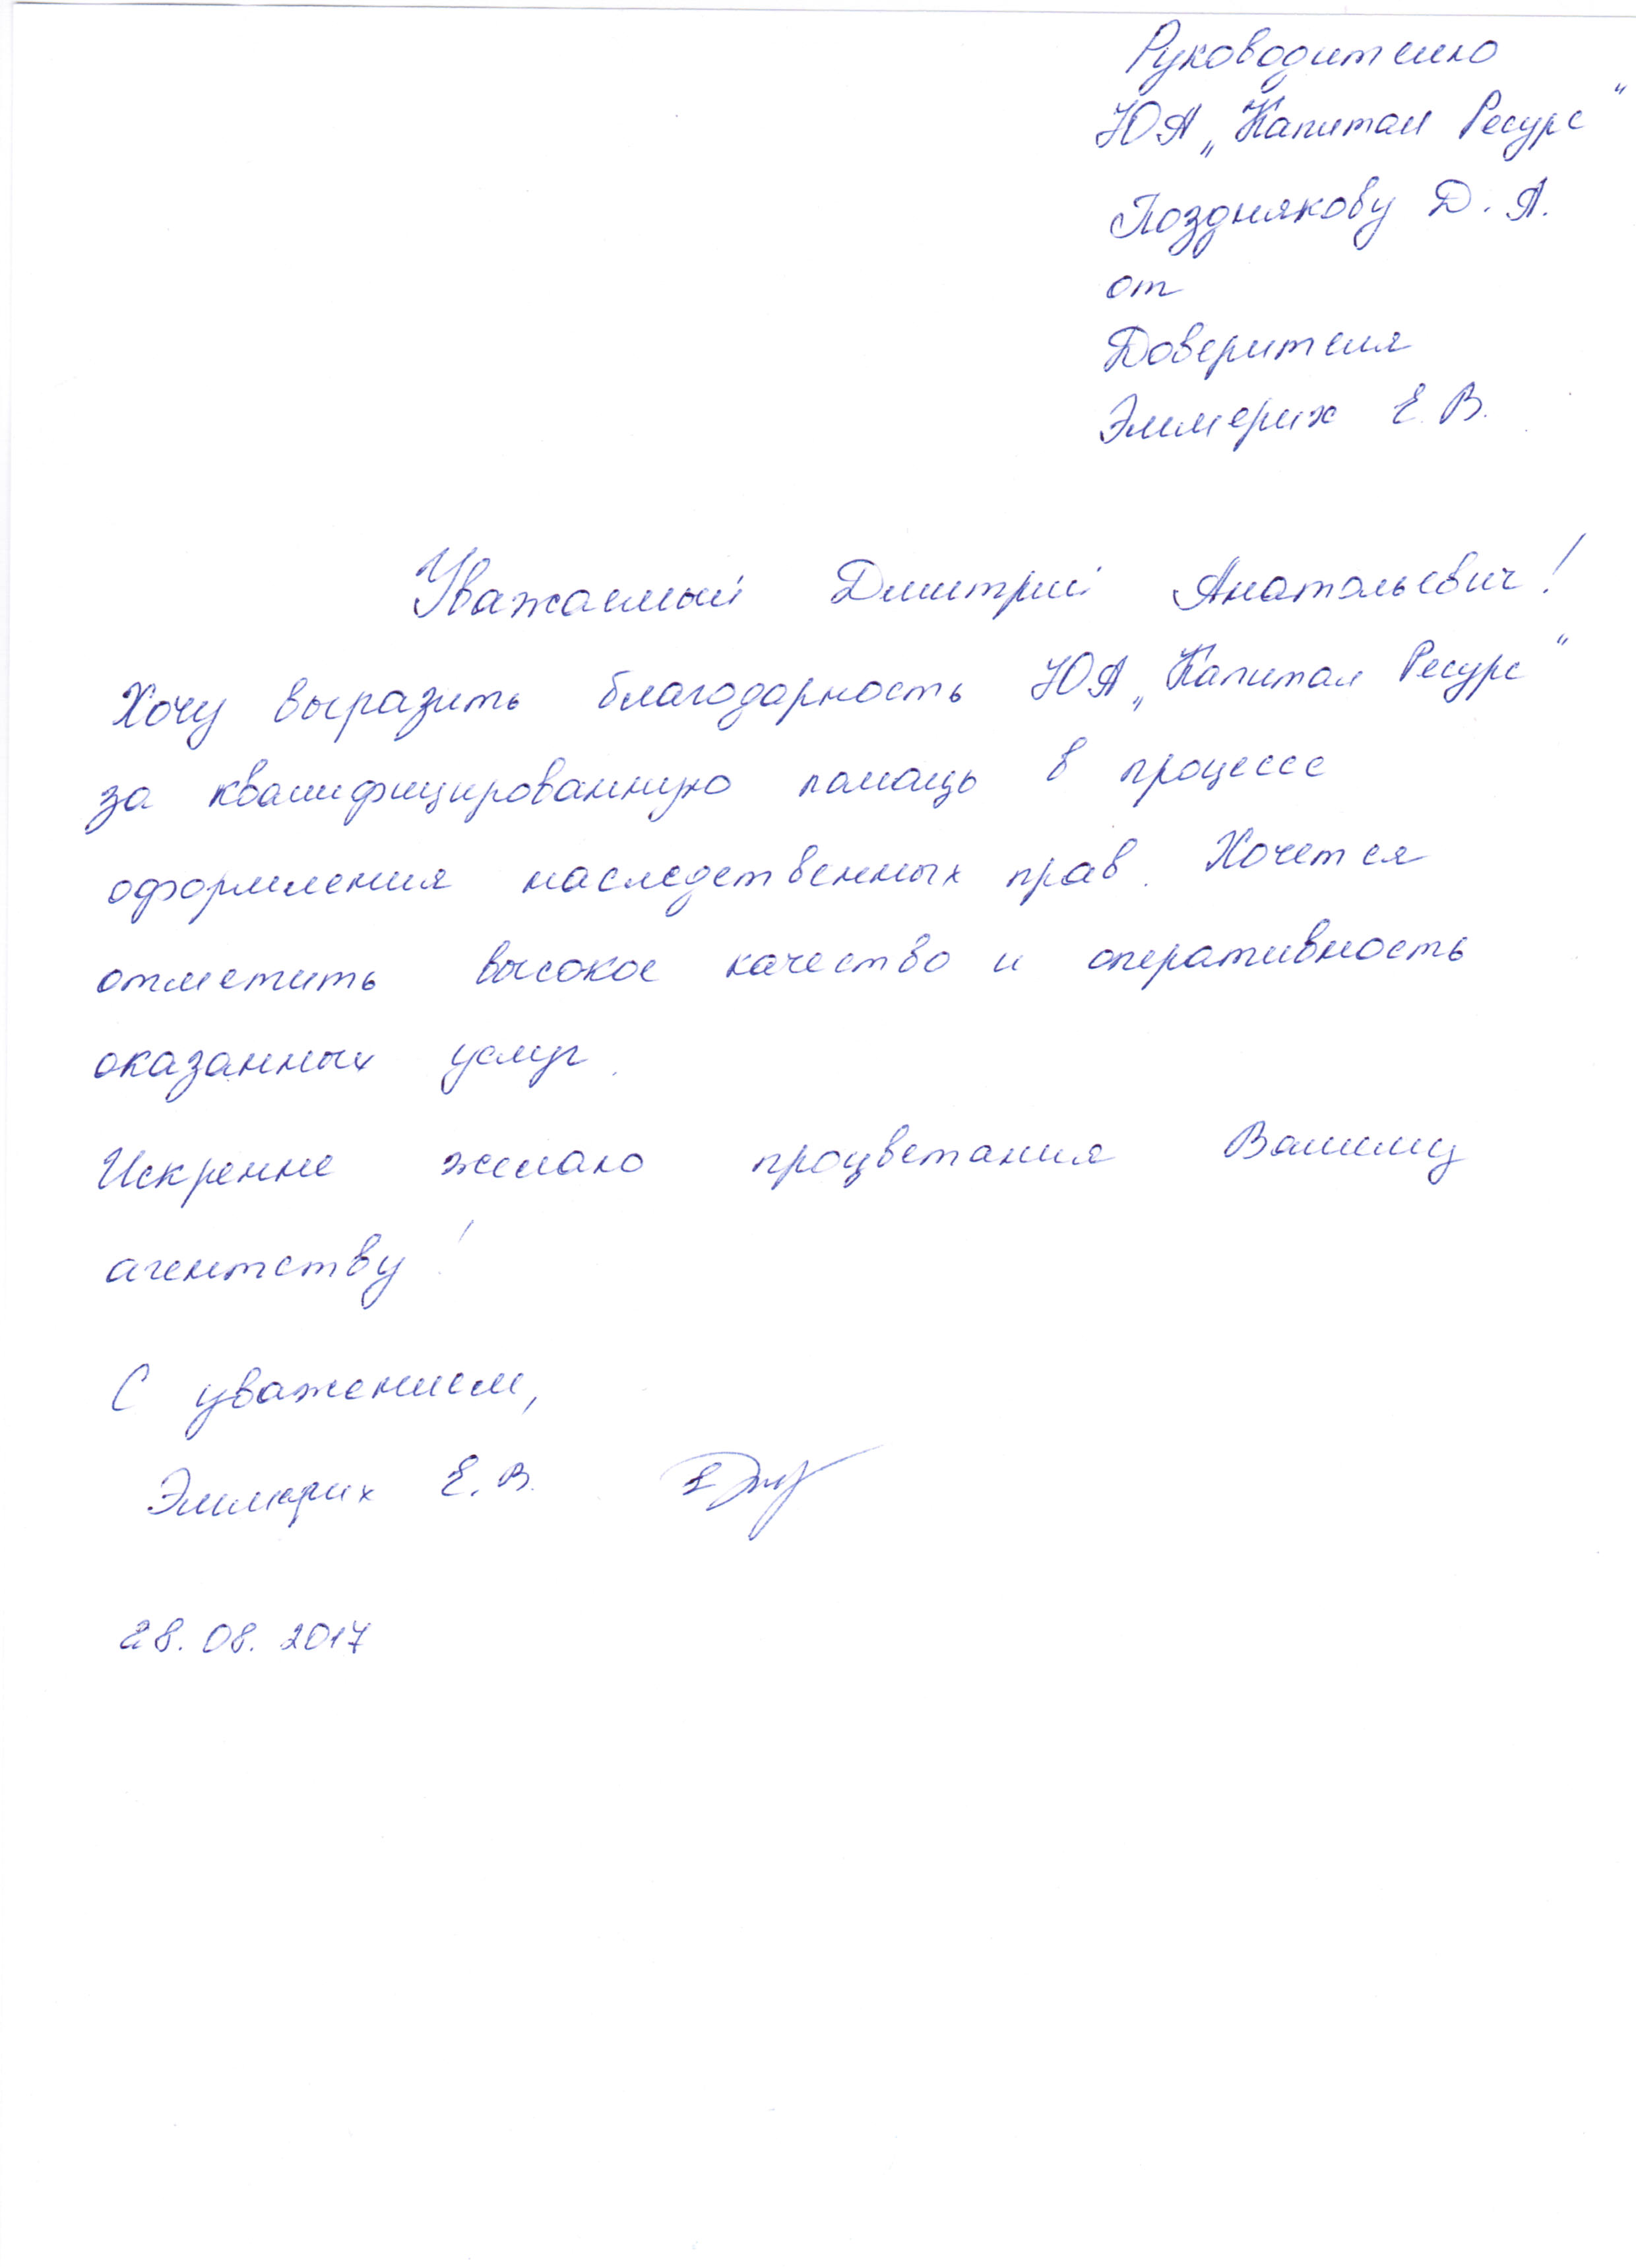 Руководителю
ЮА „Капитал Ресурс“
Позднякову Д. А.
от
Доверителя
Эммерих Е. В.
Уважаемый Дмитрий Анатольевич!
Хочу выразить благодарность ЮА „Капитал Ресурс“
за квалифицированную помощь в процессе
оформления наследственных прав. Хочется
отметить высокое качество и оперативность
оказанных услуг.
Искренне желаю процветания Вашему
агентству!
С уважением,
Эммерих Е. В.
28. 08. 2017